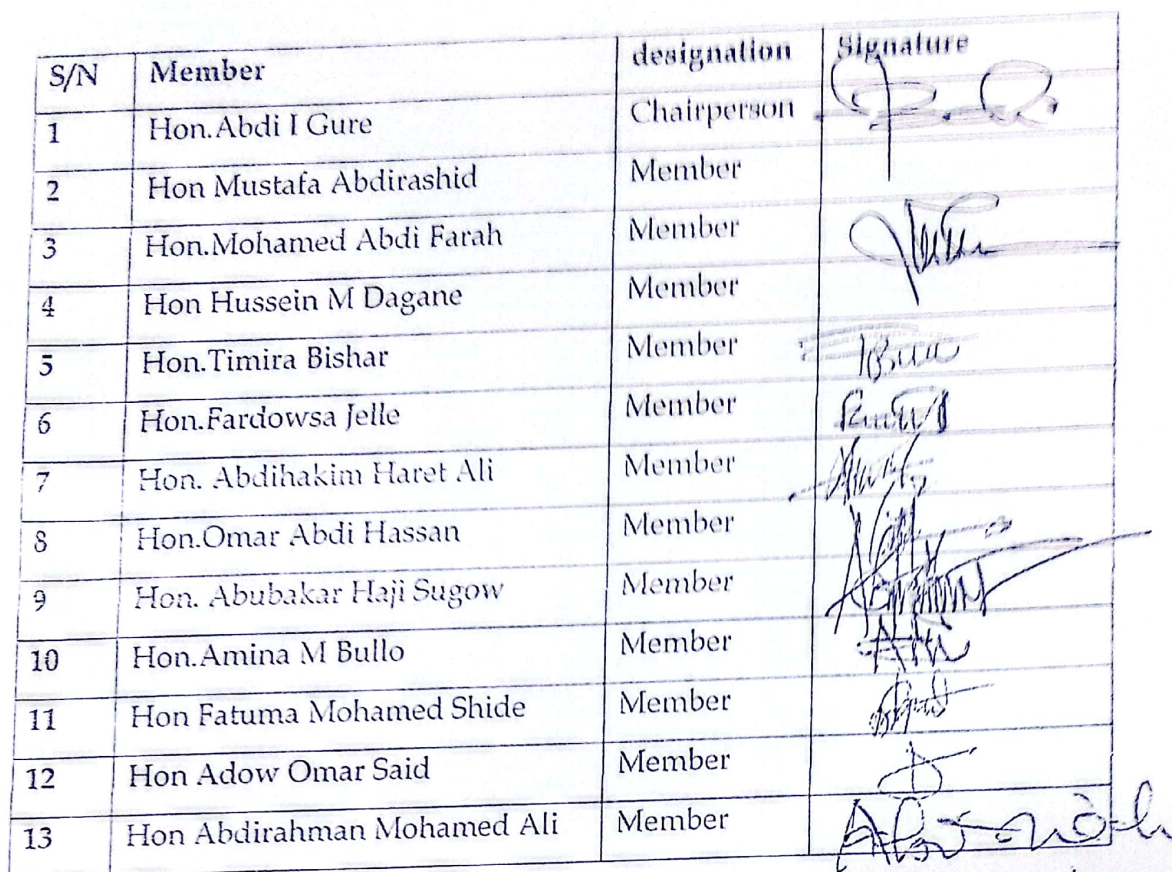 S/N Member designation Signature
1 Hon.Abdi I Gure Chairperson
2 Hon Mustafa Abdirashid Member
3 Hon.Mohamed Abdi Farah Member
4 Hon Hussein M Dagane Member
5 Hon.Timira Bishar Member
6 Hon.Fardowsa Jelle Member
7 Hon. Abdihakim Haret Ali Member
8 Hon.Omar Abdi Hassan Member
9 Hon. Abubakar Haji Sugow Member
10 Hon.Amina M Bullo Member
11 Hon Fatuma Mohamed Shide Member
12 Hon Adow Omar Said Member
13 Hon Abdirahman Mohamed Ali Member